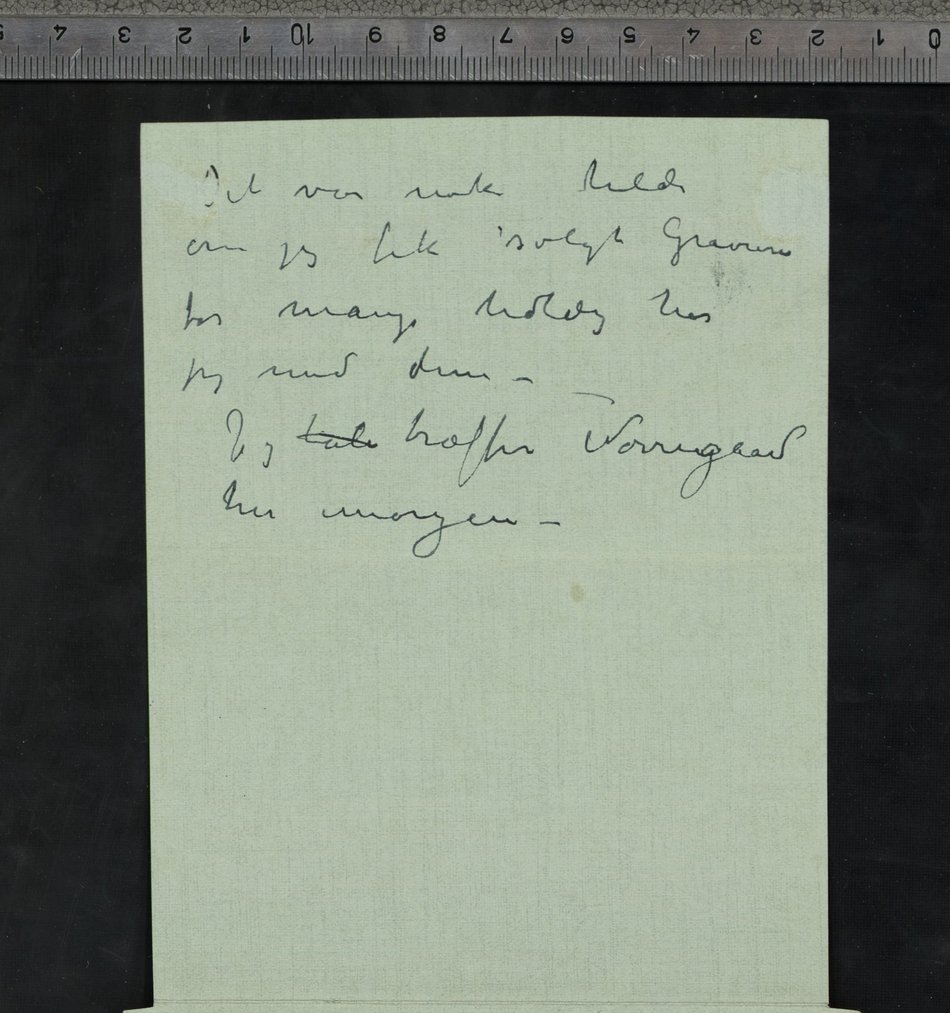 5 4 3 2 1 10 9 8 7 6 5 4 3 2 1 0
Det var nok heldi
om jeg fik solgt Gravure
for mange har
jeg med dem –
Jeg tale træffer Norregaard
her imorgen –